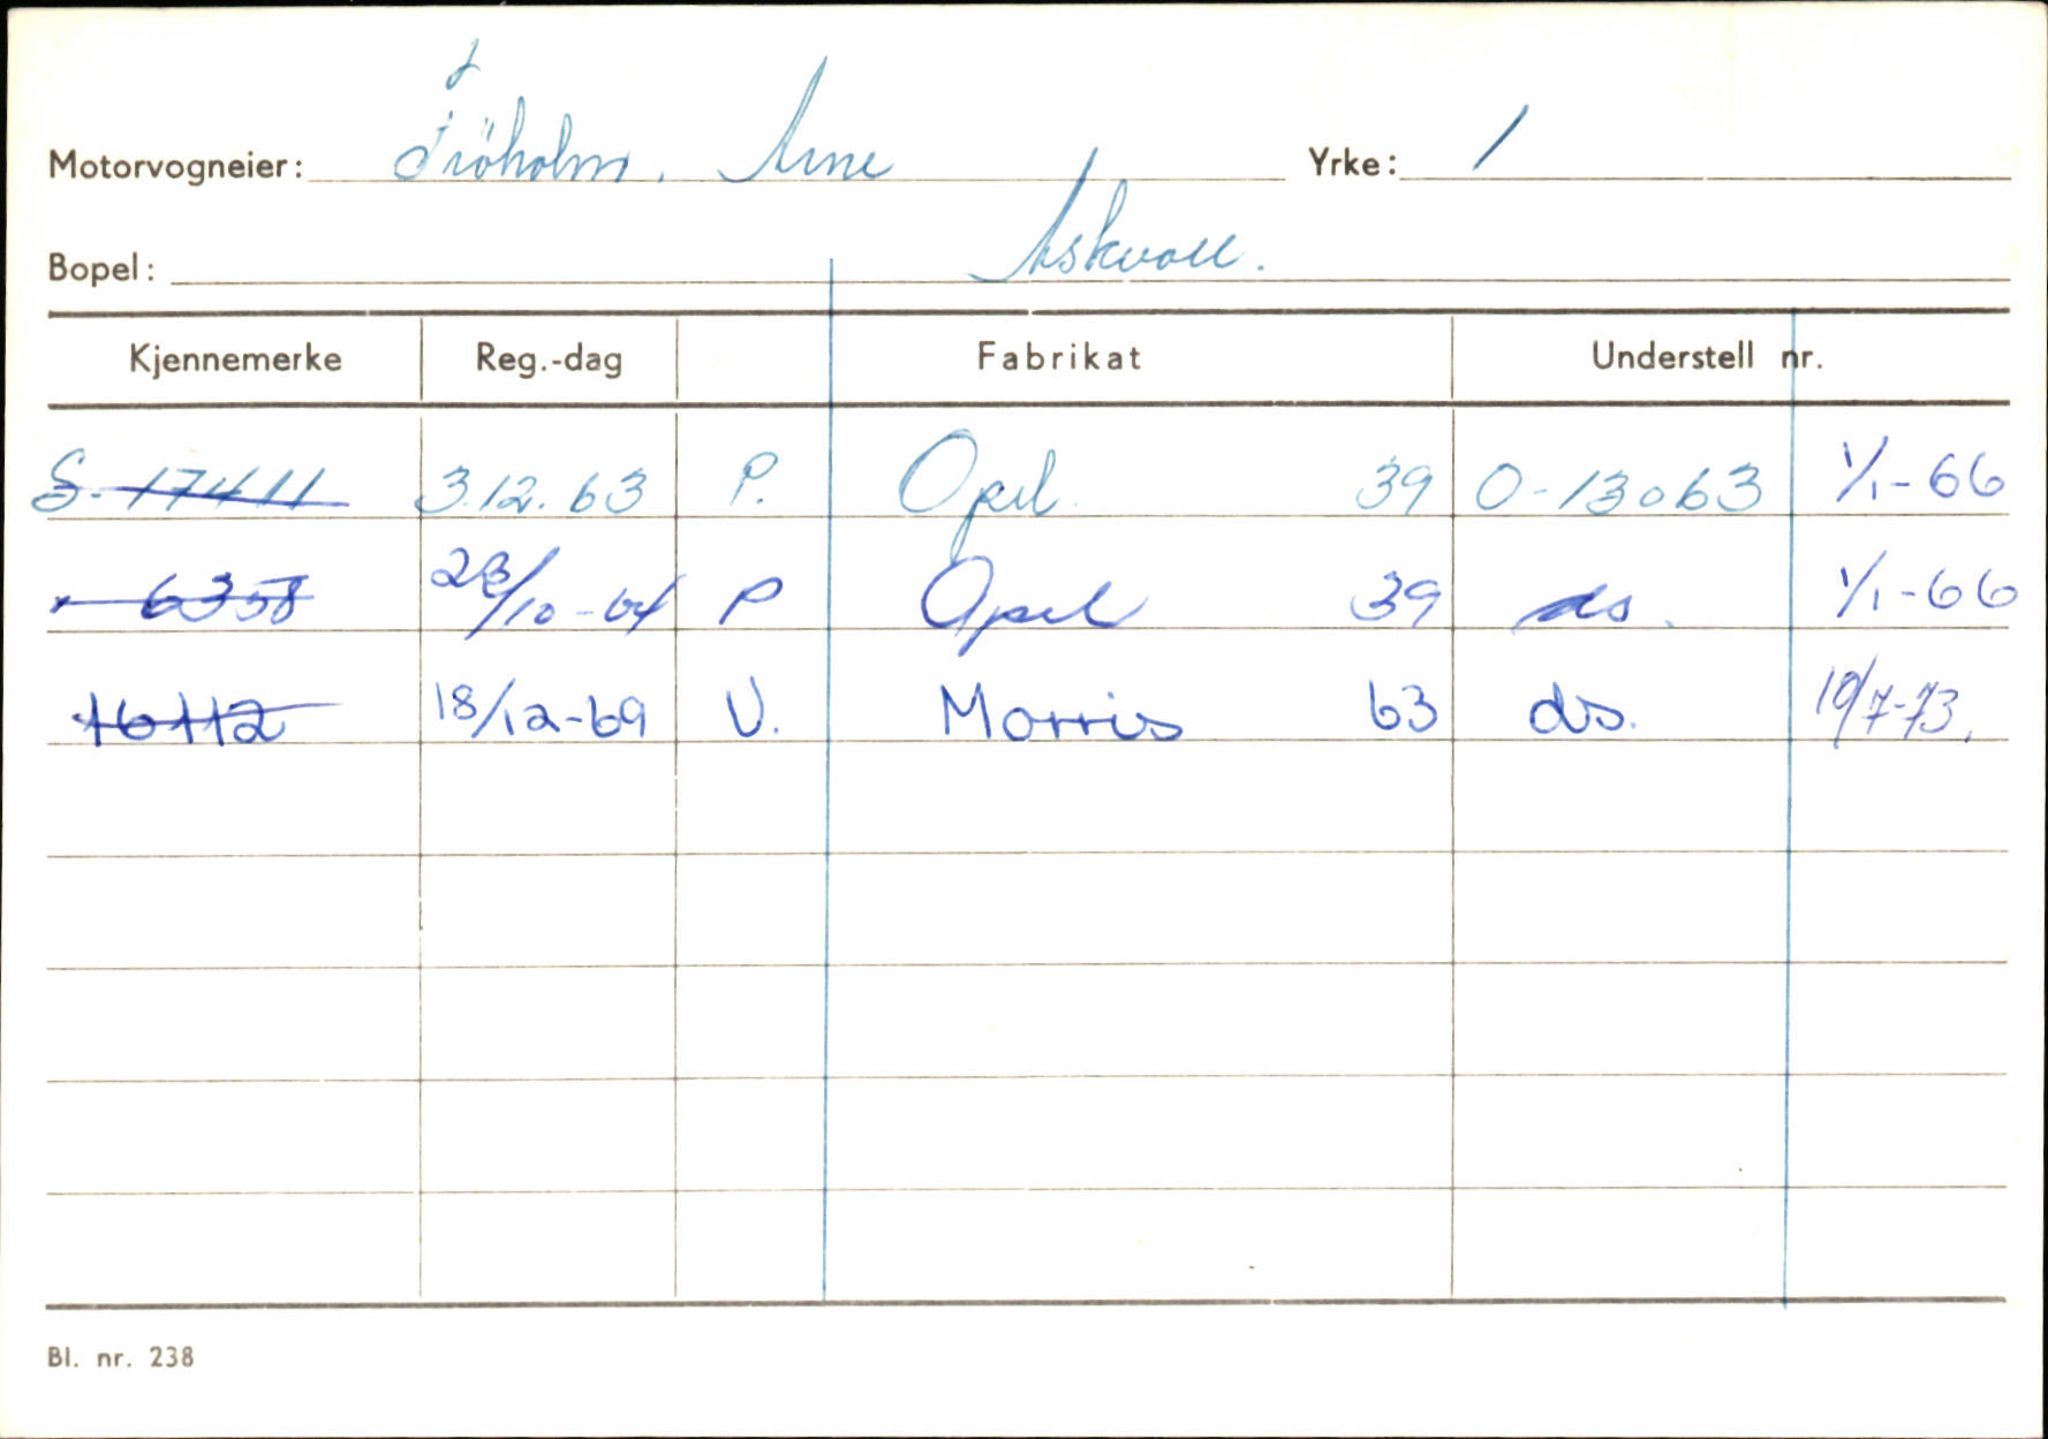 Motorvogneier: Fröholm, Arne Yrke: 1
Bopel: Askvoll.
Kjennemerke Reg.-dag Fabrikat Understell nr.
S-17411 3.12.63 P. Opel 39 O-13063 1/1-66
" 6358 23/10-64 P Opel 39 ds. 1/1-66
16112 18/12-69 V. Morris 63 ds. 19/7-73.
Bl. nr. 238